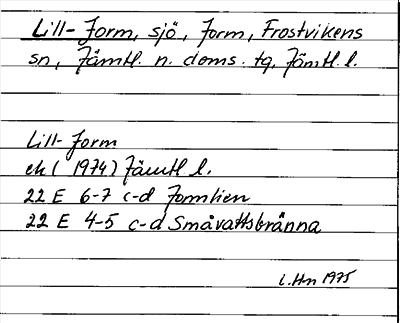 Lill-Jorm, sjö, Jorm, Frostvikens
sn, Jämtl. n. doms. tg, Jämtl. l.
Lill-Jorm
ek (1974) Jämtl l.
22 E 6-7 c-d Jormlien
22 E 4-5 c-d Småvattsbränna
1975